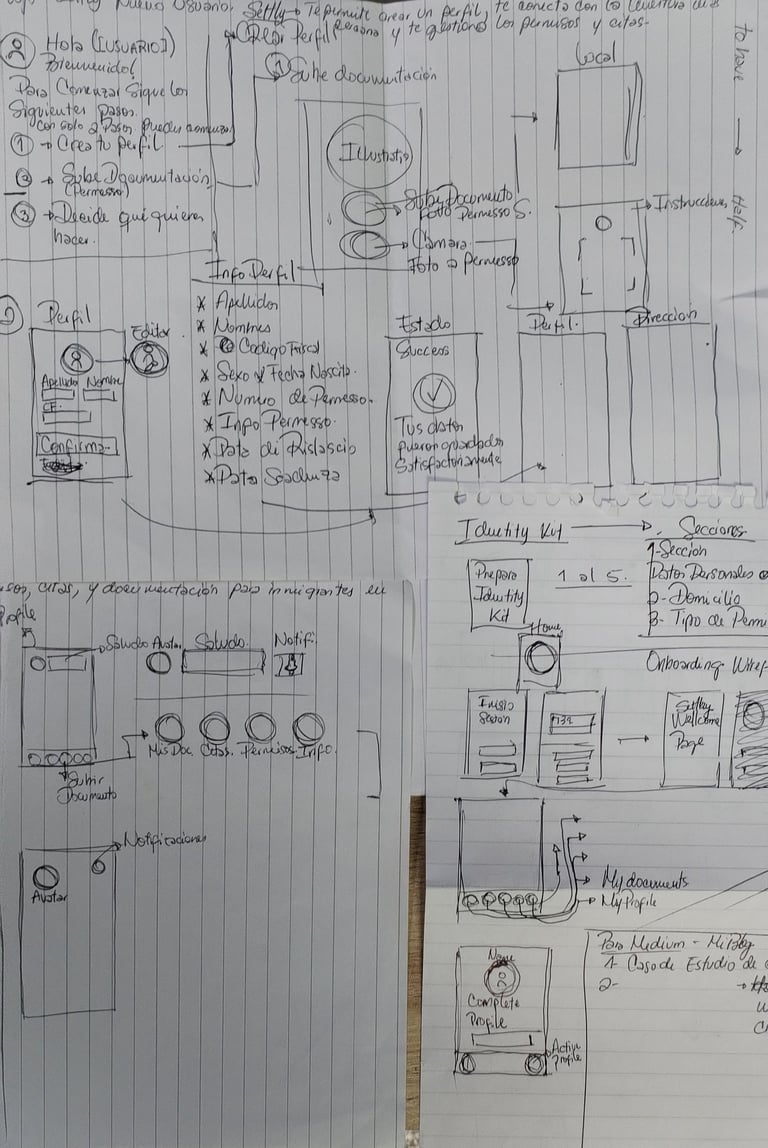 Nuevo Usuario. Settly → Te permite crear un perfil, te conecta con la
persona y te gestiona los permisos y citas.
Crear Perfil
Hola [USUARIO]
Bienvenido!
Para Comenzar Sigue los
Siguientes pasos.
con solo 2 Pasos Puedes
① → Crea tu perfil
② → Sube Documentación
(Permesso)
③ → Decide qué quieres
hacer.
② Sube documentación
Illustratio
Sube Documento
Foto Permesso S.
Cámara
Foto a Permesso
Local
Instrucciones
to have → Help.
Perfil
Editar
Apellido Nombre
CF.
Confirma
Info Perfil
* Apellidos
* Nombres
* Codigo Fiscal
* Sexo y Fecha Nascita.
* Numero de Permesso.
* Info Permesso.
* Data di Rislascio
* Data Scadenza
Estado
Success
Tus datos
fueron guardados
Satisfactoriamente
Perfil.
Dirección
Identity Kit → Secciones
1-Sección
Datos Personales
2- Domicilio
3- Tipo de Permi
Prepara
Identity
Kit
1 al 5.
Home
Onboarding Wiref
Inicio
Sesion
Settly
Wellcome
Page
My documents
My Profile
citas, y documentación para inmigrantes en
Profile
Saludo Avatar
Saludo.
Notifi.
Mis Doc. Citas. Permisos. Info.
Subir
Documento
Notificaciones
Avatar
Name
Complete
Profile
Active
Profile
Para Medium - Mi Blog
1- Caso de Estudio de
2-